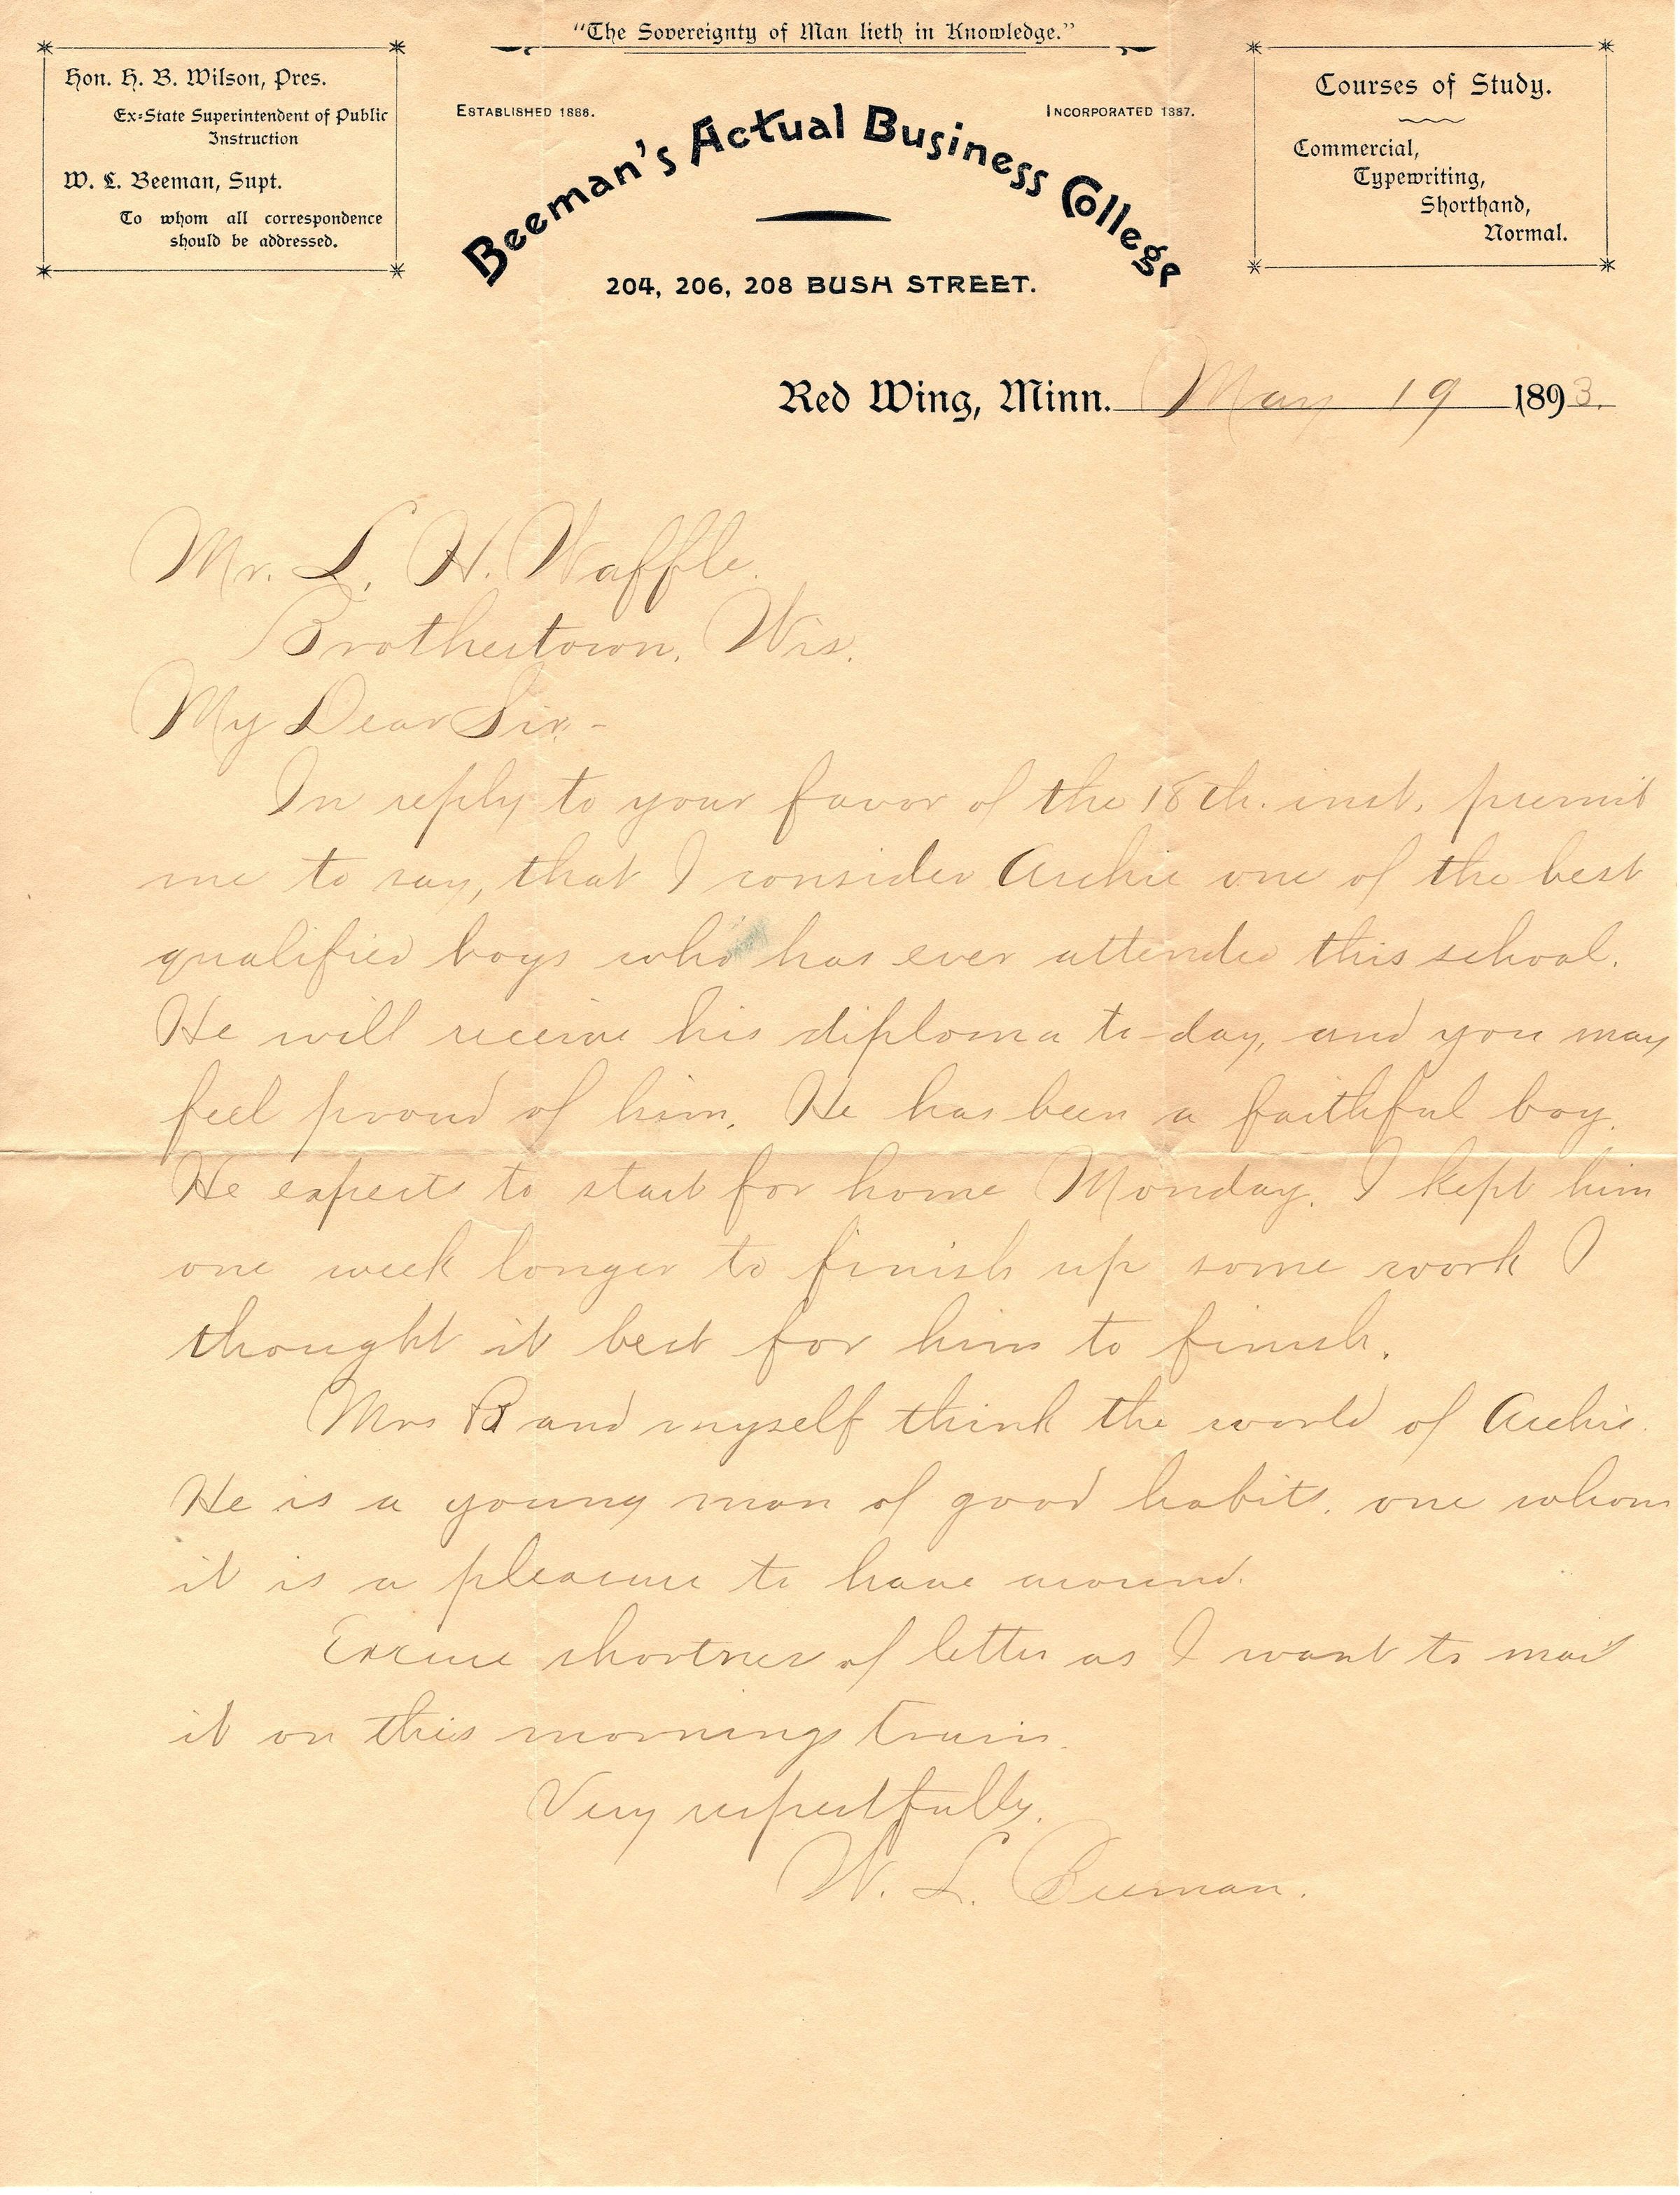 "The Sovereignty of Man lieth in Knowledge."
Hon. H. B. Wilson, Pres.
Ex-State Superintendent of Public
Instruction
W. L. Beeman, Supt.
To whom all correspondence
should be addressed.
ESTABLISHED 1886.
INCORPORATED 1887.
Beeman's Actual Business College
204, 206, 208 BUSH STREET.
Courses of Study.
Commercial,
Typewriting,
Shorthand,
Normal.
Red Wing, Minn. May 19 1893.
Mr. L. H. Waffle.
Brothertown, Wis.
My Dear Sir:-
In reply to your favor of the 18th. inst, premit
me to say, that I consider Archie one of the best
qualified boys who has ever attended this school.
He will receive his diploma to-day, and you may
feel proud of him. He has been a faithful boy.
He expects to start for home Monday. I kept him
one week longer to finish up some work I
thought it best for him to finish.
Mrs B and myself think the world of Archie.
He is a young man of good habits, one whom
it is a pleasure to have around.
Excuse shortnes of letter as I want to mail
it on this mornings train.
Very respectfully,
W. L. Beeman.